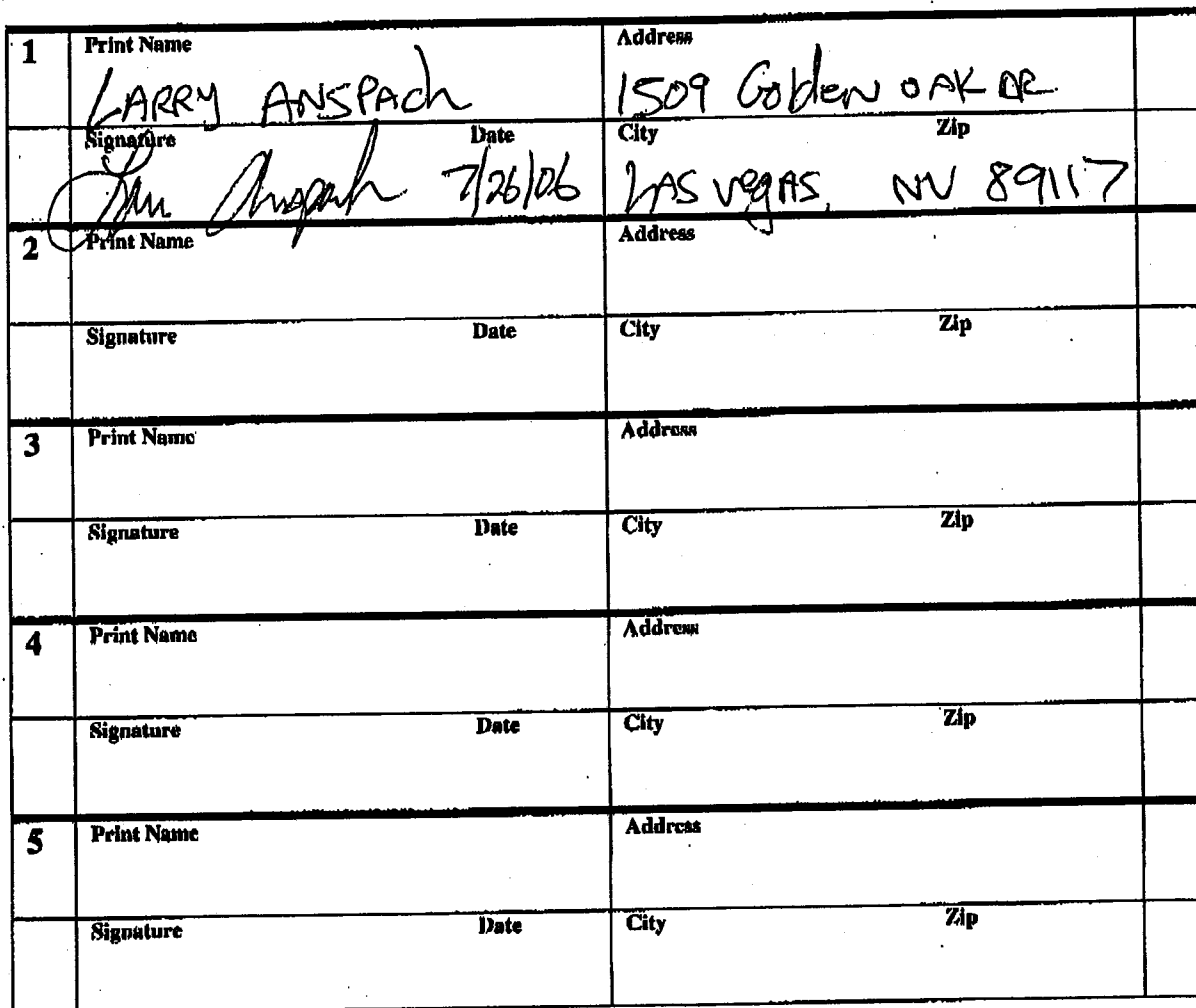 1 Print Name Address
LARRY ANSPAch 1509 Golden OAK DR
Signature Date City Zip
7/26/06 LAS vegAS, NV 89117
2 Print Name Address
Signature Date City Zip
3 Print Name Address
Signature Date City Zip
4 Print Name Address
Signature Date City Zip
5 Print Name Address
Signature Date City Zip